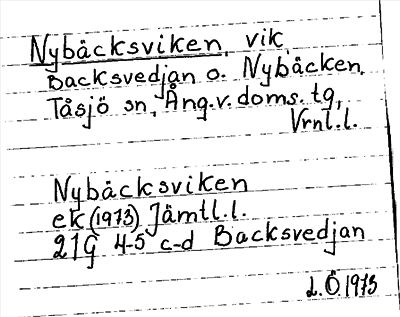 Nybäcksviken, vik,
Backsvedjan o. Nybäcken,
Tåsjö sn, Ång.v.doms.tg,
Vrnl.l.
Nybäcksviken
ek (1973) Jämtl.l.
21G 4-5 c-d Backsvedjan
L.Ö. 1973